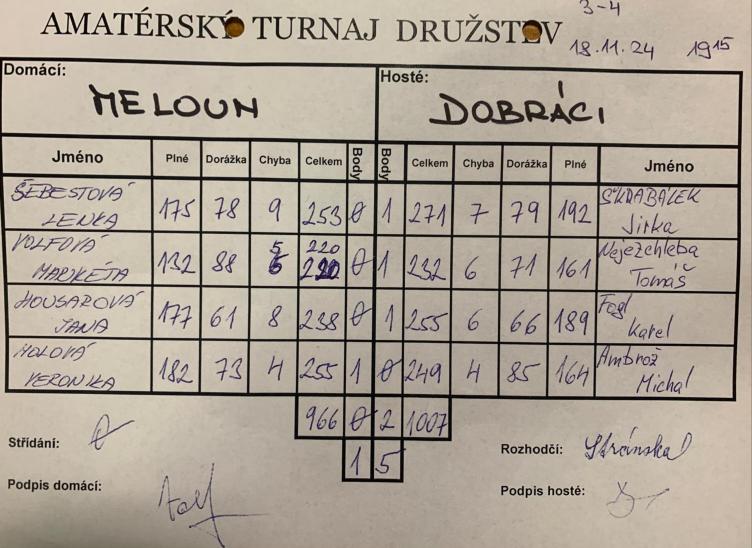 3-4
AMATÉRSKÝ TURNAJ DRUŽSTEV
18.11.24 19 15
Domácí: Hosté:
MELOUN DOBRÁCI
Jméno Plné Dorážka Chyba Celkem Body Body Celkem Chyba Dorážka Plné Jméno
ŠEBESTOVÁ LENKA 175 78 9 253 0 1 271 7 79 192 SKRABÁLEK Jirka
VOLFOVÁ MARKÉTA 132 88 5 220 0 1 232 6 71 161 Nejezchleba Tomáš
HOUSAROVÁ JANA 177 61 8 238 0 1 255 6 66 189 Fogl Karel
HOLOVÁ VERONIKA 182 73 4 255 1 0 249 4 85 164 Ambrož Michal
966 0 2 1007
1 5
Střídání: 0
Rozhodčí: Stránská
Podpis domácí:
Podpis hosté: